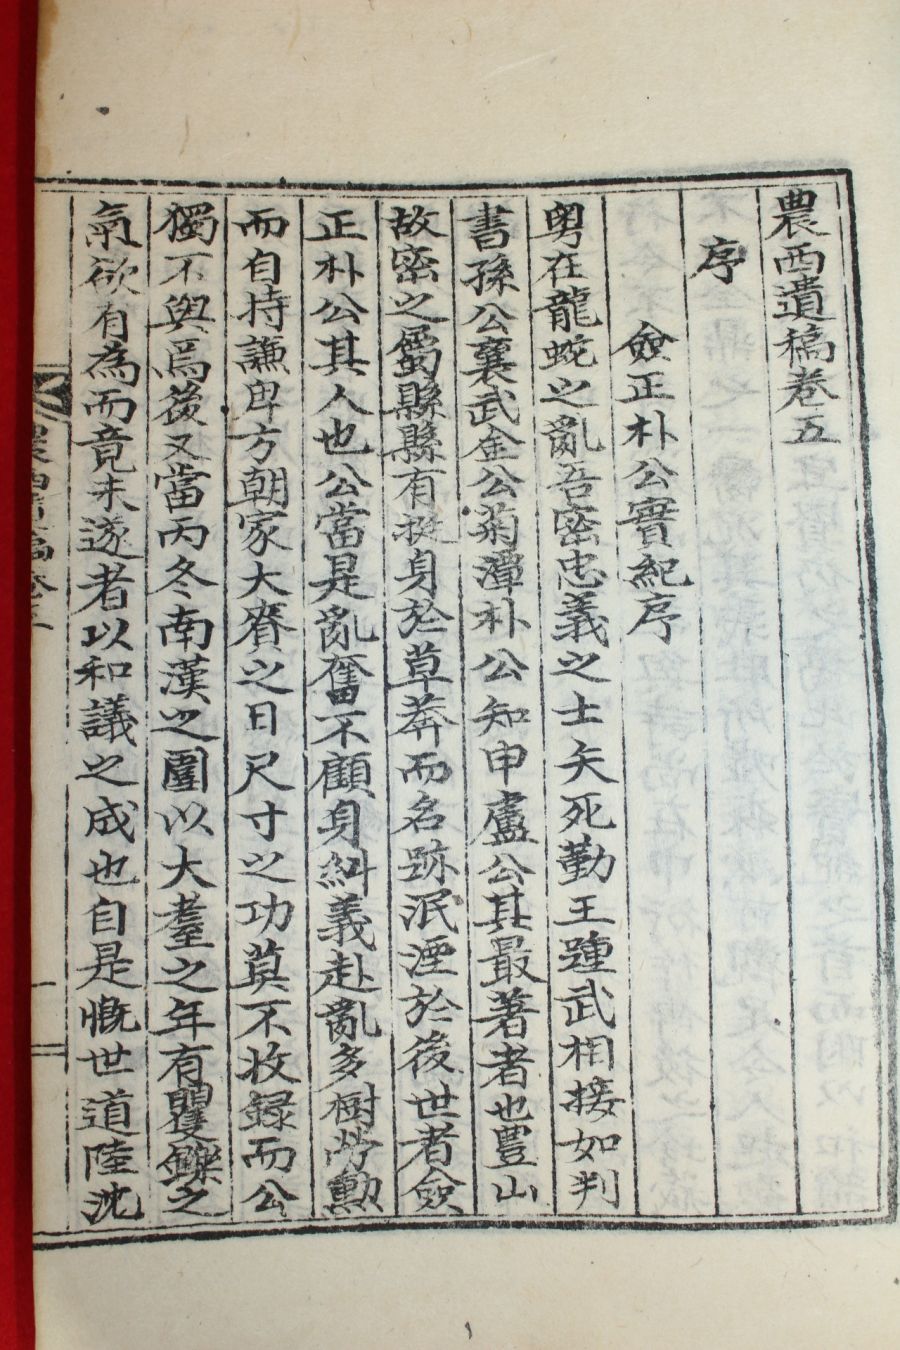 農西遺稿卷五
序
僉正朴公實紀序
粤在龍蛇之亂吾密忠義之士矢死勤王踵武相接如判
書孫公襄武金公菊潭朴公知申盧公其最著者也豊山
故密之屬縣縣有挺身於草莽而名跡泯湮於後世者僉
正朴公其人也公當是亂奮不顧身糾義赴亂多樹勞勲
而自持謙卑方朝家大賚之日尺寸之功莫不收録而公
獨不與焉後又當丙冬南漢之圍以大耋之年有矍鑠之
氣欲有為而竟未遂者以和議之成也自是慨世道陸沈